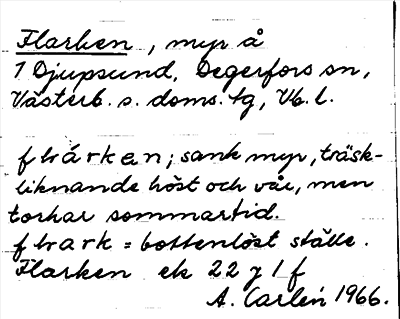 Flarken, myr å
1 Djupsund, Degerfors sn,
Västerb. s. doms. tg, Vb. l.
flárken; sank myr, träsk-
liknande höst och vår, men
torkar sommartid.
flark = bottenlöst ställe.
Flarken ek 22 J 1 f
A. Carlén 1966.